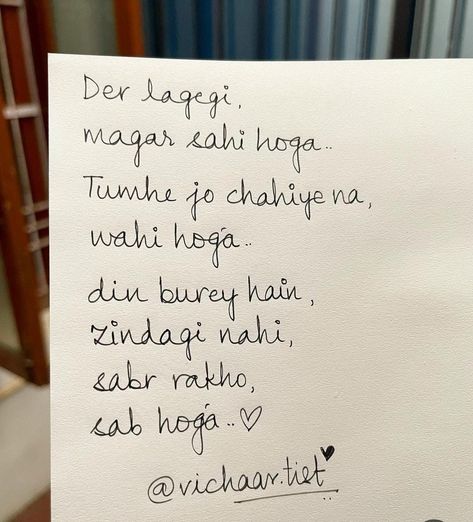 Der lagegi,
magar sahi hoga..
Tumhe jo chahiye na,
wahi hoga..
din burey hain,
zindagi nahi,
sabr rakho,
sab hoga..♡
@vichaar.tist♥